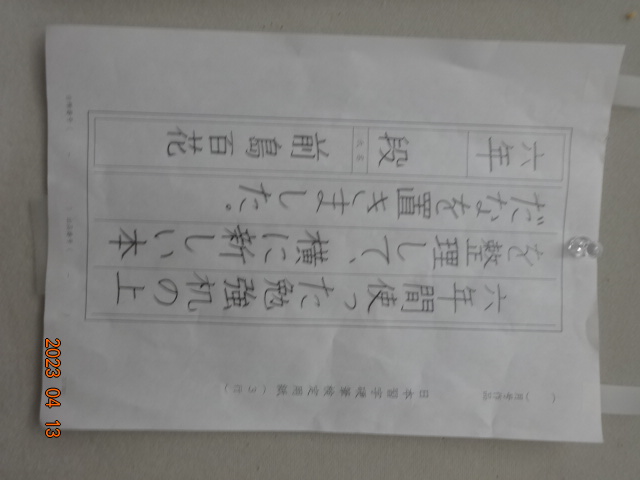 日本習字硬筆検定用紙（3行）
六年間使った勉強机の上
を整理して、横に新しい本
だなを置きました。
六年 段 氏名 前島百花
2023 04 13